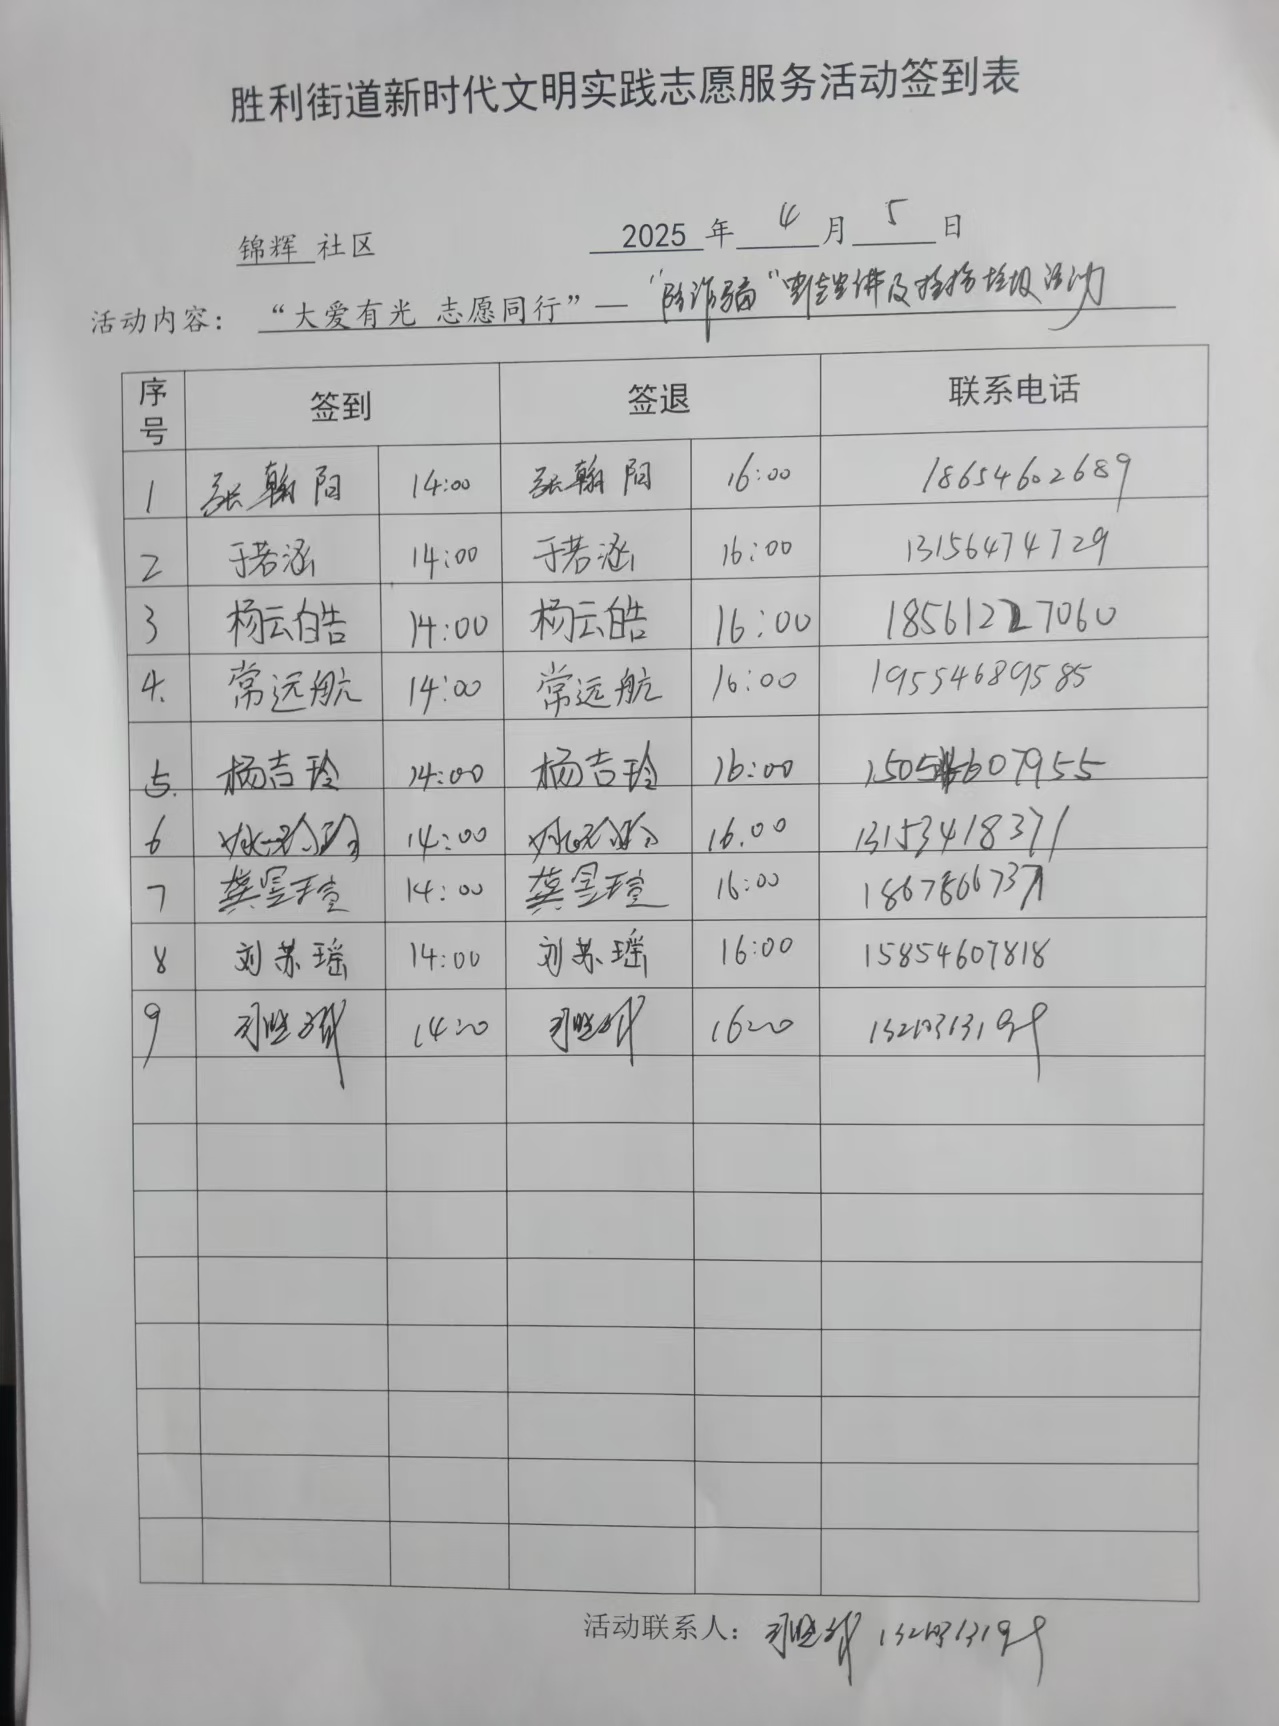 胜利街道新时代文明实践志愿服务活动签到表
锦辉 社区 2025 年 4 月 5 日
活动内容： “大爱有光 志愿同行”— “防诈骗”宣讲及捡拾垃圾活动
序号 签到 签退 联系电话
1 张翰阳 14:00 张翰阳 16:00 18654602689
2 于若涵 14:00 于若涵 16:00 13156474729
3 杨云皓 14:00 杨云皓 16:00 18561227060
4. 常远航 14:00 常远航 16:00 19554689585
5. 杨吉玲 14:00 杨吉玲 16:00
6 14:00 16.00 13153418371
7 龚昱瑄 14:00 龚昱瑄 16:00
8 刘苏瑶 14:00 刘苏瑶 16:00 15854607818
9
活动联系人：